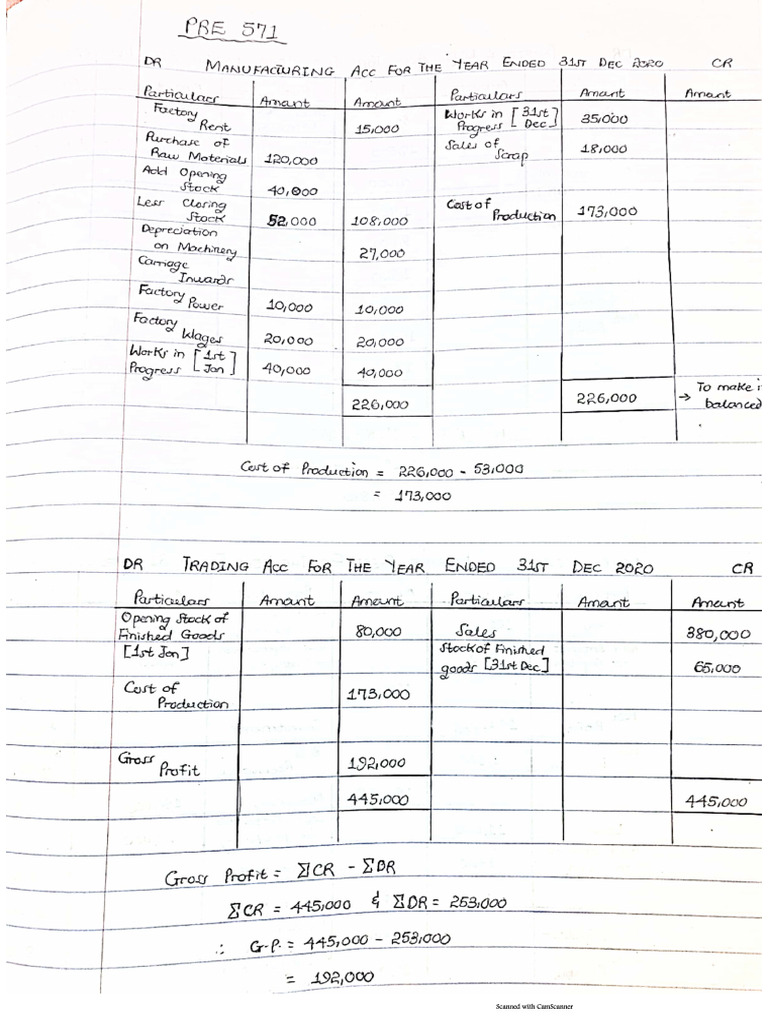 PRE 571
DR MANUFACTURING ACC FOR THE YEAR ENDED 31ST DEC 2020 CR
Particulars Amount Amount Particulars Amount Amount
Factory Works in [31st
Rent 15,000 Progress Dec] 35,000
Purchase of Sales of
Raw Materials 120,000 Scrap 18,000
Add Opening
Stock 40,000
Less Closing Cost of
Stock 52,000 108,000 Production 173,000
Depreciation
on Machinery 27,000
Carriage
Inwards
Factory
Power 10,000 10,000
Factory
Wages 20,000 20,000
Works in [1st
Progress Jan] 40,000 40,000
226,000 226,000 → To make i
balanced
Cost of Production = 226,000 - 53,000
= 173,000
DR TRADING ACC FOR THE YEAR ENDED 31ST DEC 2020 CR
Particulars Amount Amount Particulars Amount Amount
Opening Stock of
Finished Goods 80,000 Sales 380,000
[1st Jan] Stock of Finished
goods [31st Dec] 65,000
Cost of
Production 173,000
Gross
Profit 192,000
445,000 445,000
Gross Profit = ΣCR - ΣDR
ΣCR = 445,000 & ΣDR = 253,000
∴ G.P. = 445,000 - 253,000
= 192,000
Scanned with CamScanner